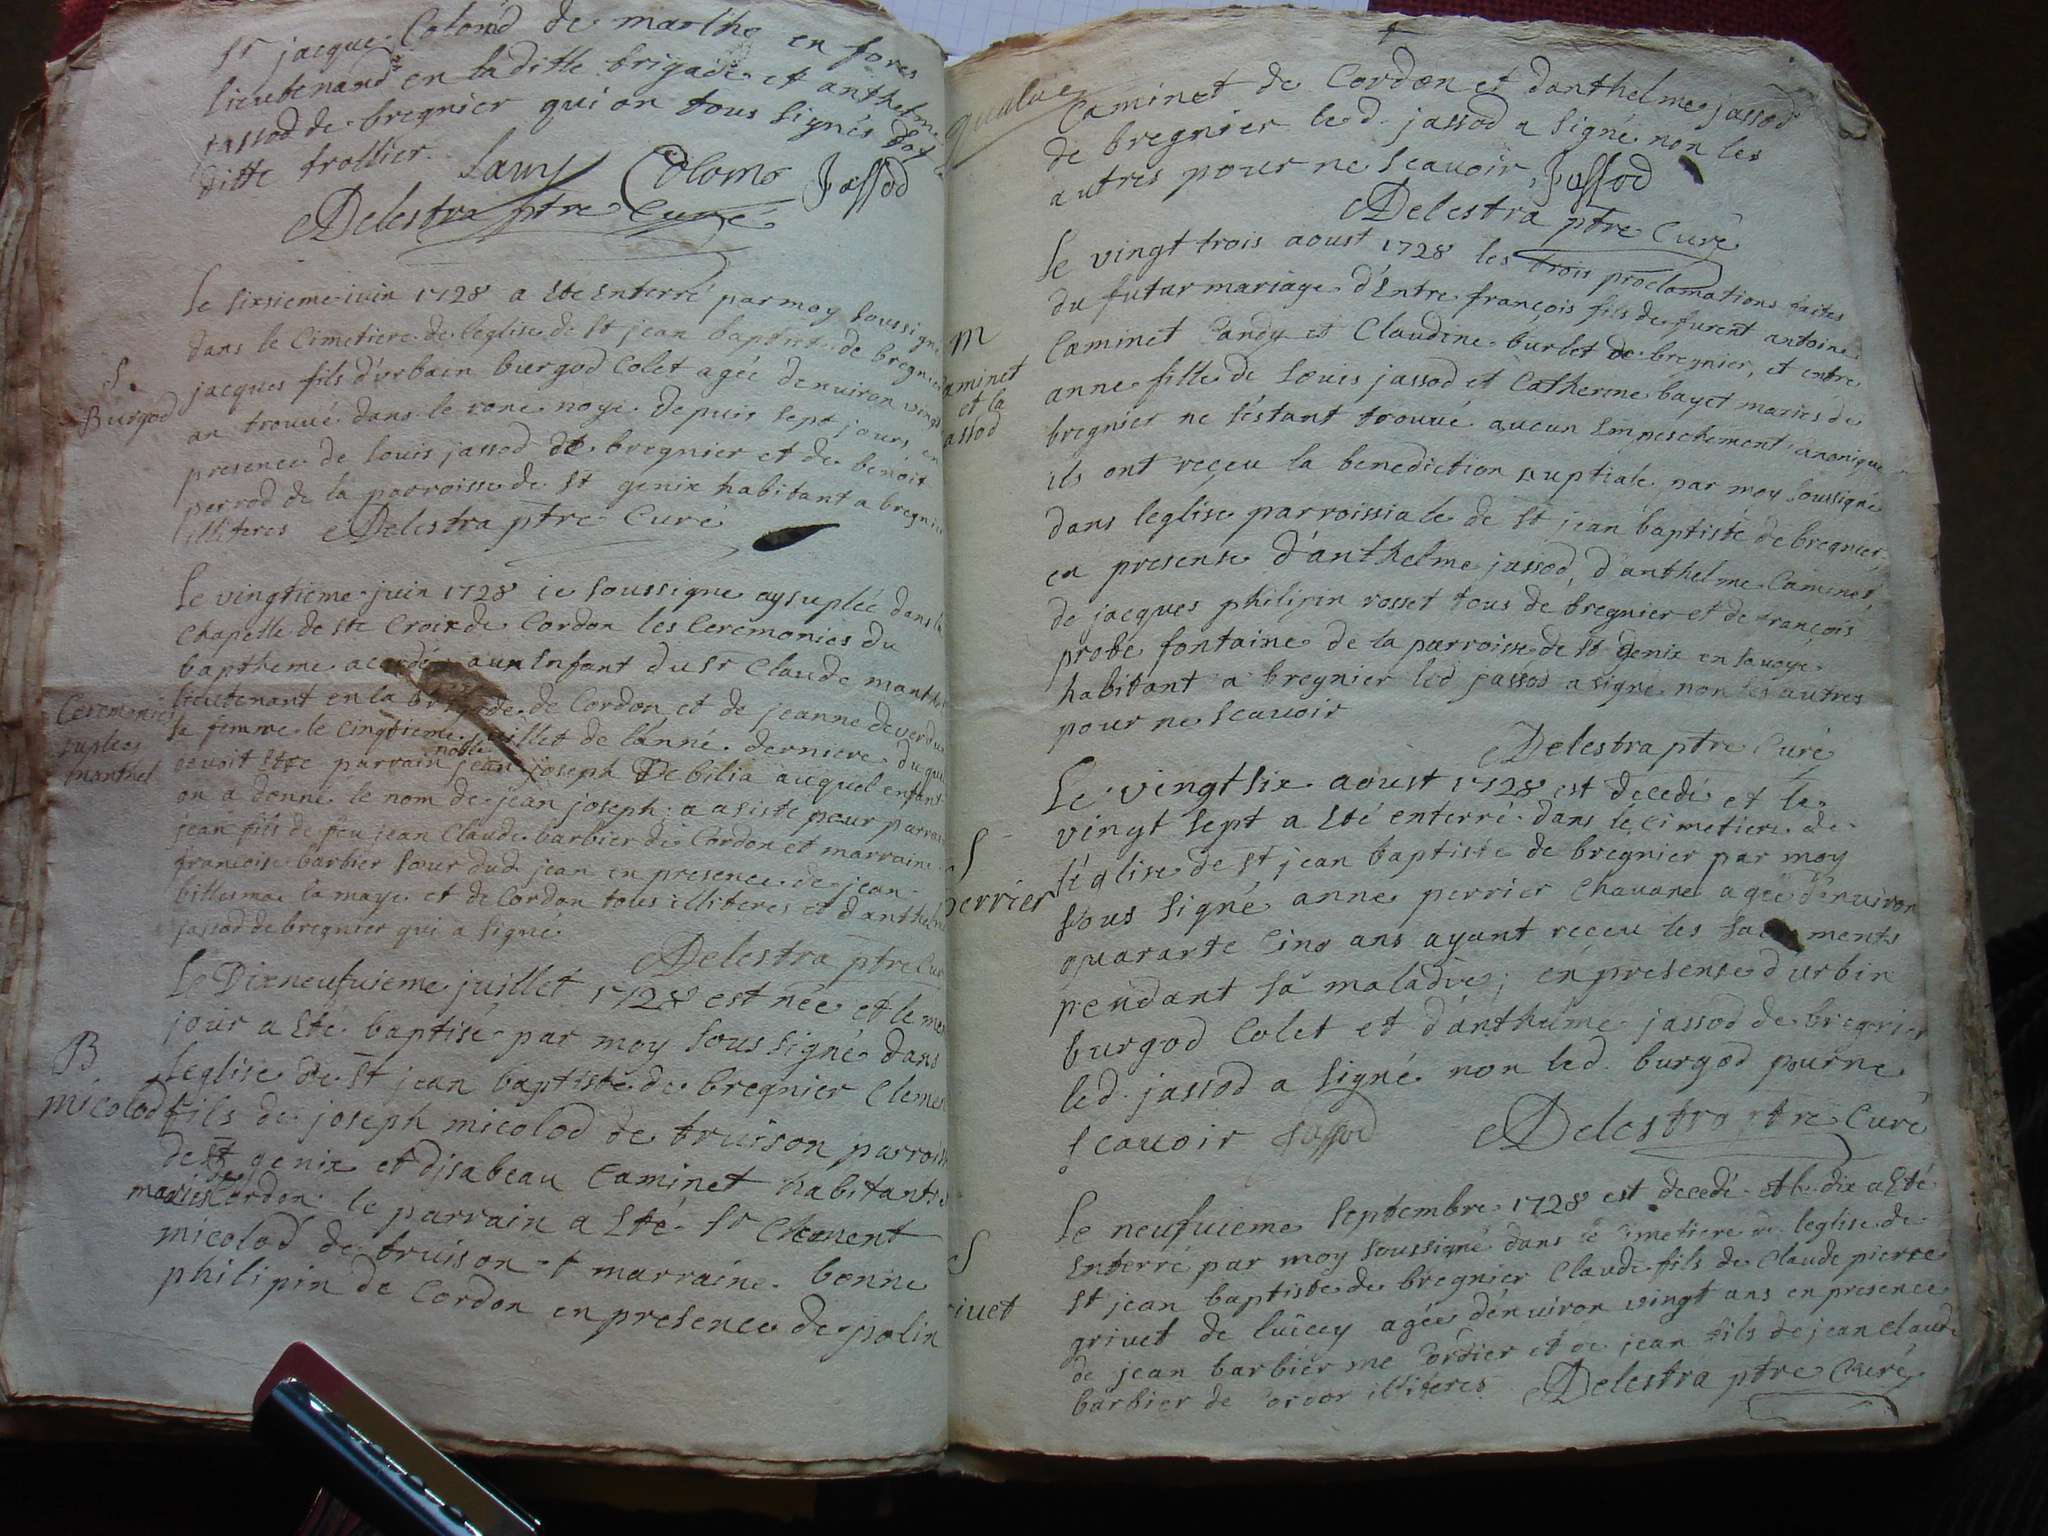 St jacque Colond de marlhe en fores
lieutenand en laditte brigade et anthelme
jassod de bregnier qui on tous signés
ditte trollier
Colomb Jassod
Delestra ptre Curé
S.
Burgod
le sixsieme iuin 1728 a ete Enterré par moy soussigné
dans le Cimetiere de leglise de st jean baptiste de bregnier
jacques fils d'urbain burgod Colet agée denuiron vingt
an trouué dans le rone noyé depuis sept jours en
presence de louis jassod de bregnier et de benoit
perrod de la parroisse de st genix habitant a bregnier
illiteres Delestra ptre Curé
Ceremonies
suplees
manthel
le vingtieme juin 1728 ie soussigne ay suplée dans la
Chapelle de ste Croix de Cordon les Ceremonies du
baptheme acordé a un Enfant du sr Claude manthel
lieutenant en la brigade de Cordon et de jeanne deverdun
se femme le cinqtieme juillet de lanné derniere duquel
devoit Etre parrain noble jean joseph De bilia auquel enfant
on a donné le nom de jean joseph; a asisté pour parrain
jean fils de feu jean Claude barbier de Cordon et marraine
francoise barbier sour dud. jean en presence de jean
billemaz la maye et de Cordon tous illiteres et danthelme
jassod de bregnier qui a signé
Delestra ptre Curé
B
micolod
Le Dixneufuieme juillet 1728 est née et le mesme
jour a Eté baptisé par moy sous signé dans
leglise de st jean baptiste de bregnier Clement
fils de joseph micolod de truison parroisse
de st genix et disabeau Caminet habitants
mariés de Cordon le parrain a Eté sr Clement
micolod de truison et marraine bonne
philipin de Cordon en presence de
Caminet de Cordon et danthelme jassod
de bregnier led. jassod a signé non les
autres pour ne scauoir Jassod
Delestra ptre Curé
m
Caminet
et la
jassod
le vingt trois aoust 1728 les trois proclamations faites
du futur mariage d'Entre françois fils de furent antoine
Caminet et Claudine burlet de bregnier, et entre
anne fille de louis jassod et Catherine bayet mariés de
bregnier ne s'éstant trouué aucun Empeschement Canonique
ils ont reçeu la benediction nuptiale par moy soussigné
dans leglise parroissiale de st jean baptiste de bregnier,
en presense d'anthelme jassod, d'anthelme Caminet,
de jacques philipin rosset tous de bregnier et de françois
probe fontaine de la parroisse de st genix en sauoye
habitant a bregnier led jassod a signé non les autres
pour ne scauoir
Delestra ptre Curé
S
perrier
Le vingt six aoust 1728 est décedé et le
vingt sept a Eté enterré dans le cimetiere de
l'églisse de st jean baptiste de bregnier par moy
sous signé anne perrier Chauanel agée d'enuiron
quarante Cinq ans ayant reçeu les sacrements
pendant sa maladie; en presense d'urbin
burgod Colet et d'anthelme jassod de bregnier
led. jassod a signé non led. burgod pour ne
scauoir Jassod
Delestra ptre Curé
S
Griuet
le neufuieme septembre 1728 est decedé et le dix a Eté
Enterré par moy soussigné dans le Cimetiere de leglise de
st jean baptiste de bregnier Claude fils de Claude pierre
griuet de luicey agée d'enuiron vingt ans en presence
de jean barbier me Cordier et de jean fils de jean claude
barbier de Cordon illiteres Delestra ptre Curé